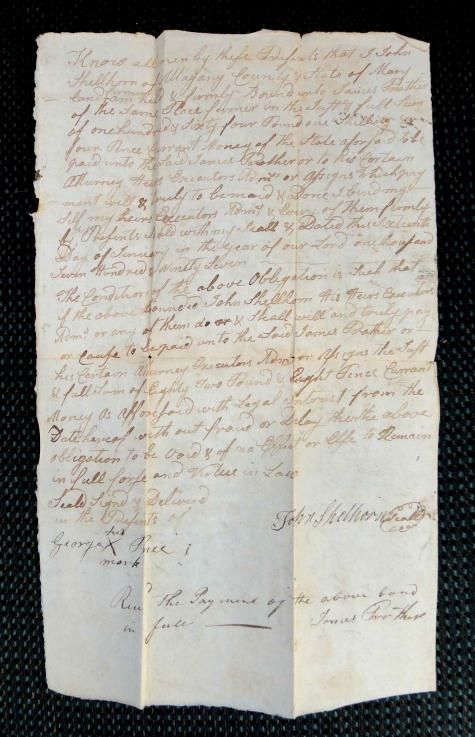 Know all men by these Presents that I John
Shellhorn of Allagany County & State of Mary
land farmer am held & firmly Bound unto James Prather
of the Same Place farmer in the Just & full Sum
of one hundred & Sixty four Pound one Shilling &
four Pence Currant Money of the State aforsaid to be
paid unto the Said James Prather or to his Certain
Attorney Heirs Executors Admrs or Asigns which pay
ment will & truly to be maid & Done I bind my
Self my heirs Executors Admrs & Every of them firmly
by Presents Seald with my Seall & Dated this Sixteenth
Day of January in the year of our Lord one thousand
Seven Hundred & Ninety Seven
The Condition of the above Obligation is Such that
if the above bounden John Shellhorn His Heirs Executors
Admrs or any of them do or & Shall will and truly pay
or Cause to be paid unto the Said James Prather or
his Certain Attorney Executors Admrs or Asigns the Just
& full Sum of Eighty Two Pound & Eight Pence Currant
Money as Afforesaid with Legal Intrest from the
Date hereof with out fraud or Delay then the above
obligation to be Void & of no Effect or Else to Remain
in full forse and Virtue in Law
Seald Signd & Deliverd
in the Presents of
John Shelhorn Seal
his
George X Price
mark
the Payment of the above bond
in full James Prather